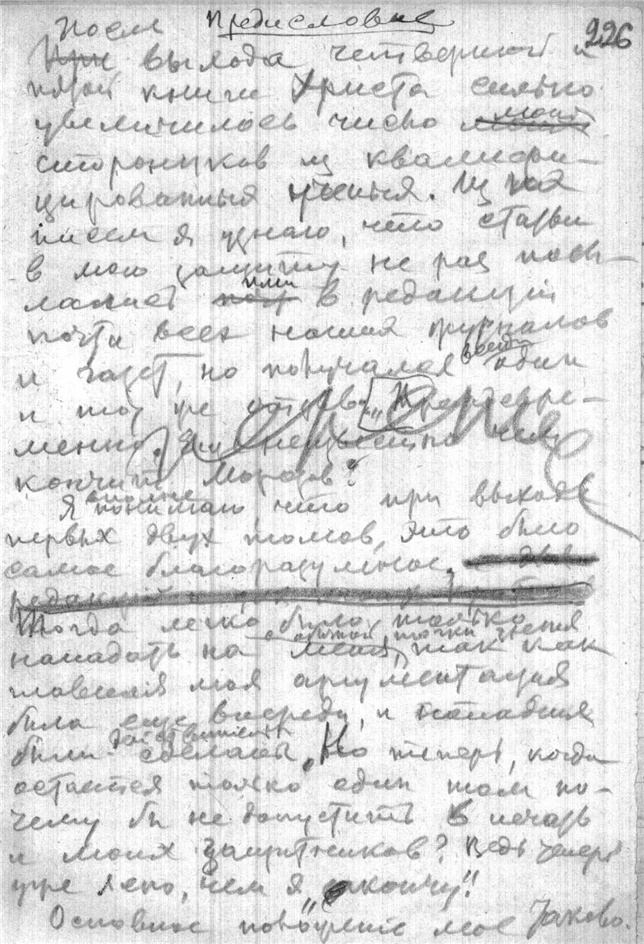 Предисловие
226
После
выхода четвертой и
пятой книги Христа сильно
увеличилось число моих
сторонников из квалифи-
цированных ученых. Из
писем я узнаю, что статьи
в мою защиту не раз посы-
лались ими в редакции
почти всех наших журналов
и газет, но получался всегда один
и тот же ответ: „Преждевре-
менно. Еще неизвестно чем
кончит Морозов?
Я вполне понимаю, что при выходе
первых двух томов, это было
самое благоразумное.
Тогда легко было только
нападать на меня, так как
главная моя аргументация
была еще впереди, и нападения
были действительно сделаны. Но теперь, когда
остается только один том по-
чему бы не допустить в печать
и моих защитников? Ведь теперь
уже ясно, чем я „закончу"!
Основное мое таково.